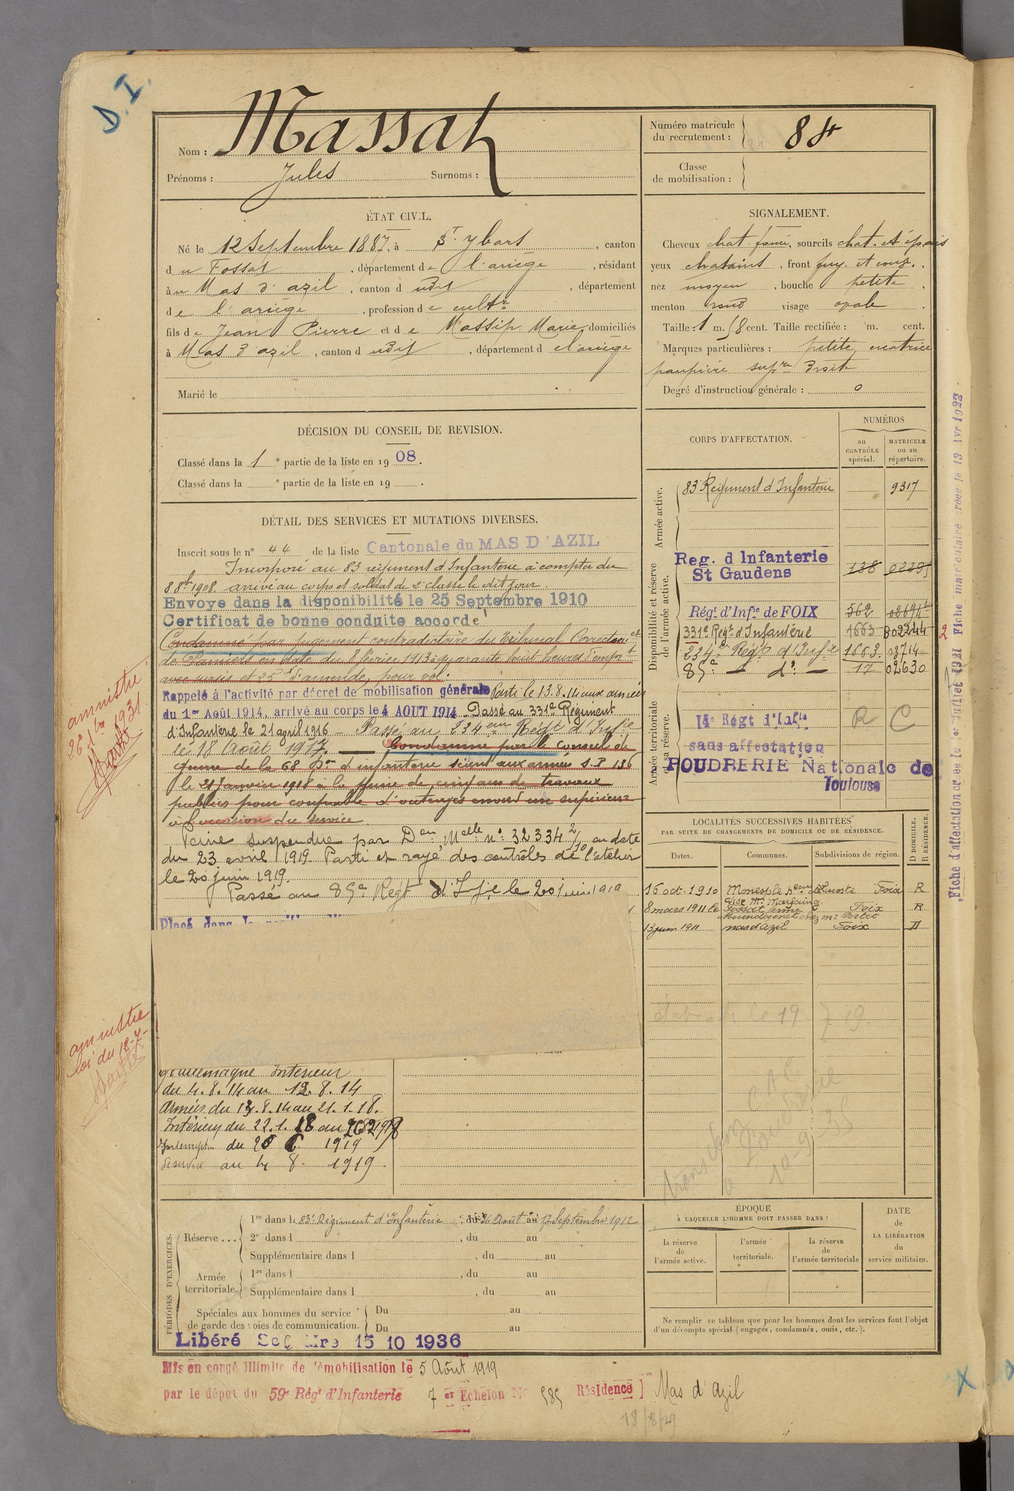 D.I.
Nom : Massat
Prénoms : Jules Surnoms :
Numéro matricule du recrutement : 84
Classe de mobilisation :
ÉTAT CIVIL.
Né le 12 Septembre 1887, à St Ybars, canton
du Fossat, département de l'ariège, résidant
à u Mas d'azil, canton d udit, département
de l'ariège, profession de cultr
fils de Jean Pierre et de Massip Marie, domiciliés
à Mas d'azil, canton d udit, département d el'ariège
Marié le
SIGNALEMENT.
Cheveux chat. foncé, sourcils chat. et épais
yeux chatains, front
nez moyen, bouche petite
menton rond visage ovale
Taille : 1 m. 58 cent. Taille rectifiée : m. cent.
Marques particulières : petite cicatrice
paupière supre droite
Degré d'instruction générale : 0
DÉCISION DU CONSEIL DE REVISION.
Classé dans la 1e partie de la liste en 1908.
Classé dans la e partie de la liste en 19 .
DÉTAIL DES SERVICES ET MUTATIONS DIVERSES.
Inscrit sous le n° 44 de la liste Cantonale du MAS D'AZIL
Incorporé au 83 régiment d'Infanterie à compter du
8 8bre 1908. arrivé au corps et soldat de 2e classe le dit jour.
Envoyé dans la disponibilité le 25 Septembre 1910
Certificat de bonne conduite accordé
Condamné par jugement contradictoire du Tribunal Correct.el
de Pamiers en date du 8 février 1913 à quarante huit heures d'empt
avec sursis et 25 f d'amende, pour vol.
Rappelé à l'activité par décret de mobilisation générale Parti le 13.8.14 aux armées
du 1er Août 1914, arrivé au corps le 4 AOUT 1914 Passé au 331e Régiment
d'Infanterie le 21 april 1916 — Passé au 234eme Régt d'Infie
le 18 Août 1917. — Condamné par le Conseil de
guerre de la 68 Don d'infanterie séant aux armées S.P. 136
le 21 janvier 1918 à la peine de cinq ans de travaux
publics pour coupable d'outrages envers une supérieur
à l'occasion du service.
Peine suspendue par Don Melle n° 32.334 2/10 en date
du 23 avril 1919. Parti et rayé des contrôles de l'atelier
le 20 juin 1919.
Passé au 85e Régt d'Infie le 20 juin 1919
Placé dans la
amnistie
1931
amnistie
loi du
allemagne Intérieur
du 4.8.14 au 12.8.14
Armées du 13.8.14 au 21.1.18.
Intérieur du 22.1.18 au
Interrupt. du 1919
au 4 8. 1919.
CORPS D'AFFECTATION.
NUMÉROS
au CONTRÔLE spécial.
MATRICULE ou au répertoire.
Armée active.
83 Régiment d'Infanterie 9317
Disponibilité et réserve de l'armée active.
Reg. d Infanterie
St Gaudens 138
Régt d'Infie de FOIX
331e Regt d'Infanterie 4663 B02244
234e Régt d'Infie 1653
85e — do — 17 02630
Armée territoriale et sa réserve.
14e Régt d'Infie R C
sans affectation
POUDRERIE Nationale de
Toulouse
LOCALITÉS SUCCESSIVES HABITÉES
PAR SUITE DE CHANGEMENTS DE DOMICILE OU DE RÉSIDENCE.
Dates. Communes. Subdivisions de région. D DOMICILE. R RÉSIDENCE.
16 oct. 1910 Monesple Foix R
8 mars 1911 Fossat Foix R
13 juin 1911 mas d'azil Foix D
le 19 7 19.
Poudrerie
10-9-35
PÉRIODES D'EXERCICES.
Réserve . . .
1re dans le 83e Régiment d'Infanterie, du Août au 17 Septembre 1912
2e dans l , du au
Supplémentaire dans l , du au
Armée territoriale.
1re dans l , du au
Supplémentaire dans l , du au
Spéciales aux hommes du service de garde des voies de communication.
Du au
Du au
ÉPOQUE
À LAQUELLE L'HOMME DOIT PASSER DANS :
la réserve de l'armée active.
l'armée territoriale.
la réserve de l'armée territoriale
DATE de LA LIBÉRATION du service militaire.
Ne remplir ce tableau que pour les hommes dont les services font l'objet
d'un décompte spécial (engagés, condamnés, omis, etc.).
Libéré 15 10 1936
Mis en congé illimité de démobilisation le 5 Août 1919
par le dépôt du 59e Régt d'Infanterie 7 er Echelon N° 585 Résidence Mas d'azil
18/8/19